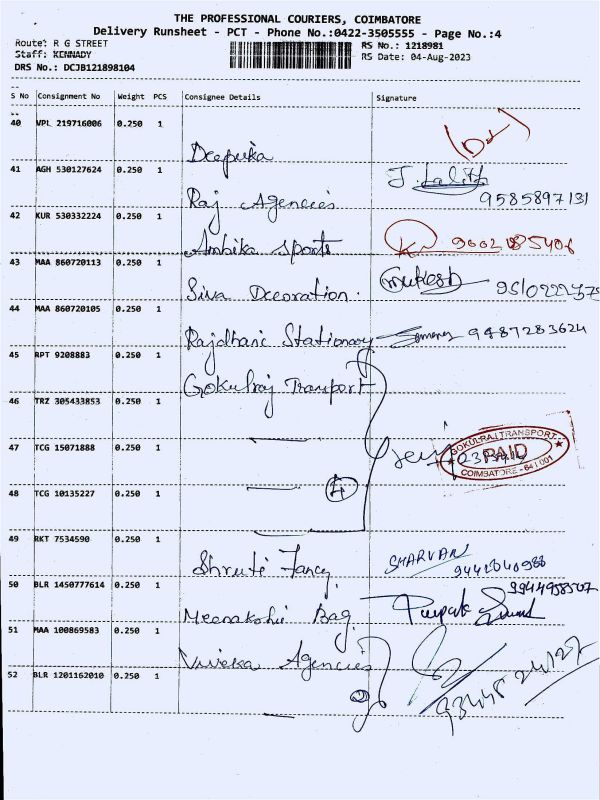 THE PROFESSIONAL COURIERS, COIMBATORE
Delivery Runsheet - PCT - Phone No.:0422-3505555 - Page No.:4
Route: R G STREET RS No.: 1218981
Staff: KENNADY RS Date: 04-Aug-2023
DRS No.: DCJB121898104
S No Consignment No Weight PCS Consignee Details Signature
40 VPL 219716006 0.250 1
Deepika
41 AGH 530127624 0.250 1 J. Lalith
Raj Agencies 9585897131
42 KUR 530332224 0.250 1
Ambika Sports
43 MAA 860720113 0.250 1 Mukesh
Siva Decoration.
44 MAA 860720105 0.250 1
Rajdhani Stationary 9487283624
45 RPT 9208883 0.250 1
Gokulraj Transport
46 TRZ 305433853 0.250 1
47 TCG 15071888 0.250 1
GOKULRAJ TRANSPORT
PAID
COIMBATORE - 641 001
48 TCG 10135227 0.250 1
4
49 RKT 7534590 0.250 1
Shruti Fancy SHARVAN
50 BLR 1450777614 0.250 1
Meenakshi Bag
51 MAA 100869583 0.250 1
Viveka Agencies
52 BLR 1201162010 0.250 1
2